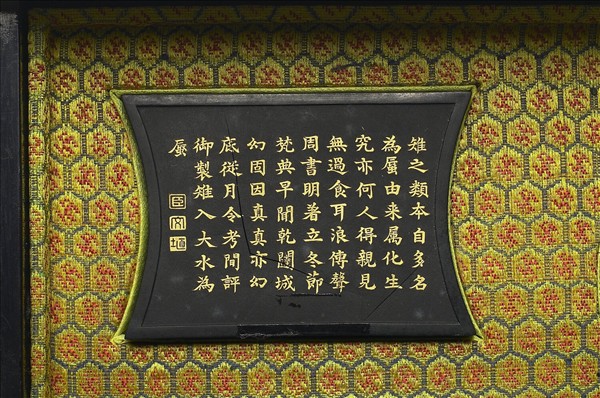 雉之類本自多名
為蜃由来属化生
究亦何人得親見
無過食耳浪傳聲
周書明著立冬節
梵典早聞乾闥城
幻固因真真亦幻
底從月令考閒評
御製雉入大水為
蜃
臣